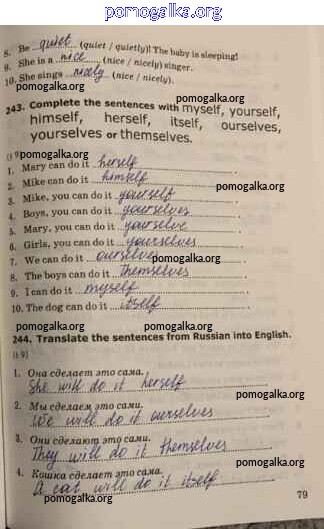 pomogalka.org
8. Be quiet (quiet / quietly)! The baby is sleeping!
9. She is a nice (nice / nicely) singer.
10. She sings nicely (nice / nicely).
pomogalka.org
243. Complete the sentences with myself, yourself,
himself, herself, itself, ourselves,
yourselves or themselves.
pomogalka.org
1. Mary can do it herself.
2. Mike can do it himself.
pomogalka.org
3. Mike, you can do it yourself.
4. Boys, you can do it yourselves.
5. Mary, you can do it yourselve.
6. Girls, you can do it yourselves.
pomogalka.org
7. We can do it ourselves.
8. The boys can do it themselves.
9. I can do it myself.
10. The dog can do it itself.
pomogalka.org pomogalka.org
244. Translate the sentences from Russian into English.
pomogalka.org
1. Она сделает это сама.
She will do it herself
2. Мы сделаем это сами.
pomogalka.org
We will do it ourselves
3. Они сделают это сами.
They will do it themselves
pomogalka.org
4. Кошка сделает это сама.
A cat will do it itself
79
pomogalka.org